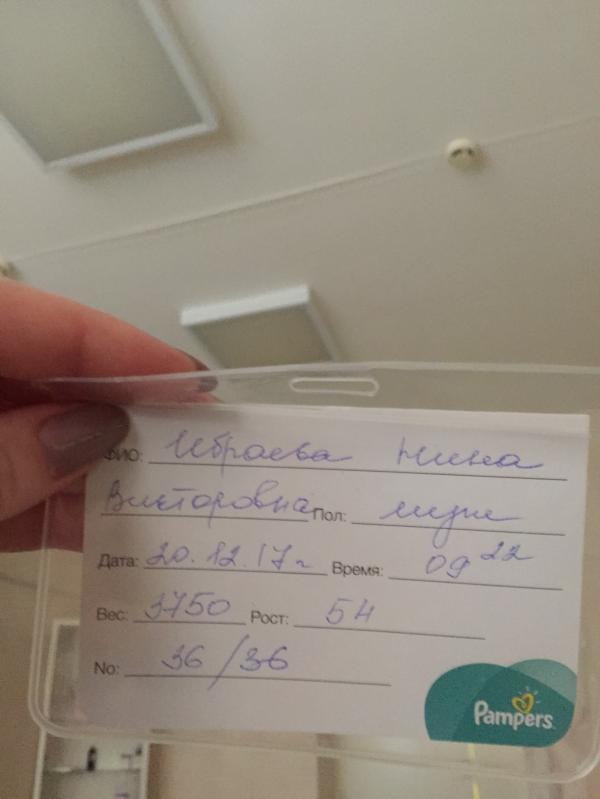 ФИО: Ибраева Нина
Викторовна Пол: муж
Дата: 20.12.17г Время: 09 22
Вес: 3750 Рост: 54
No: 36/36
Pampers